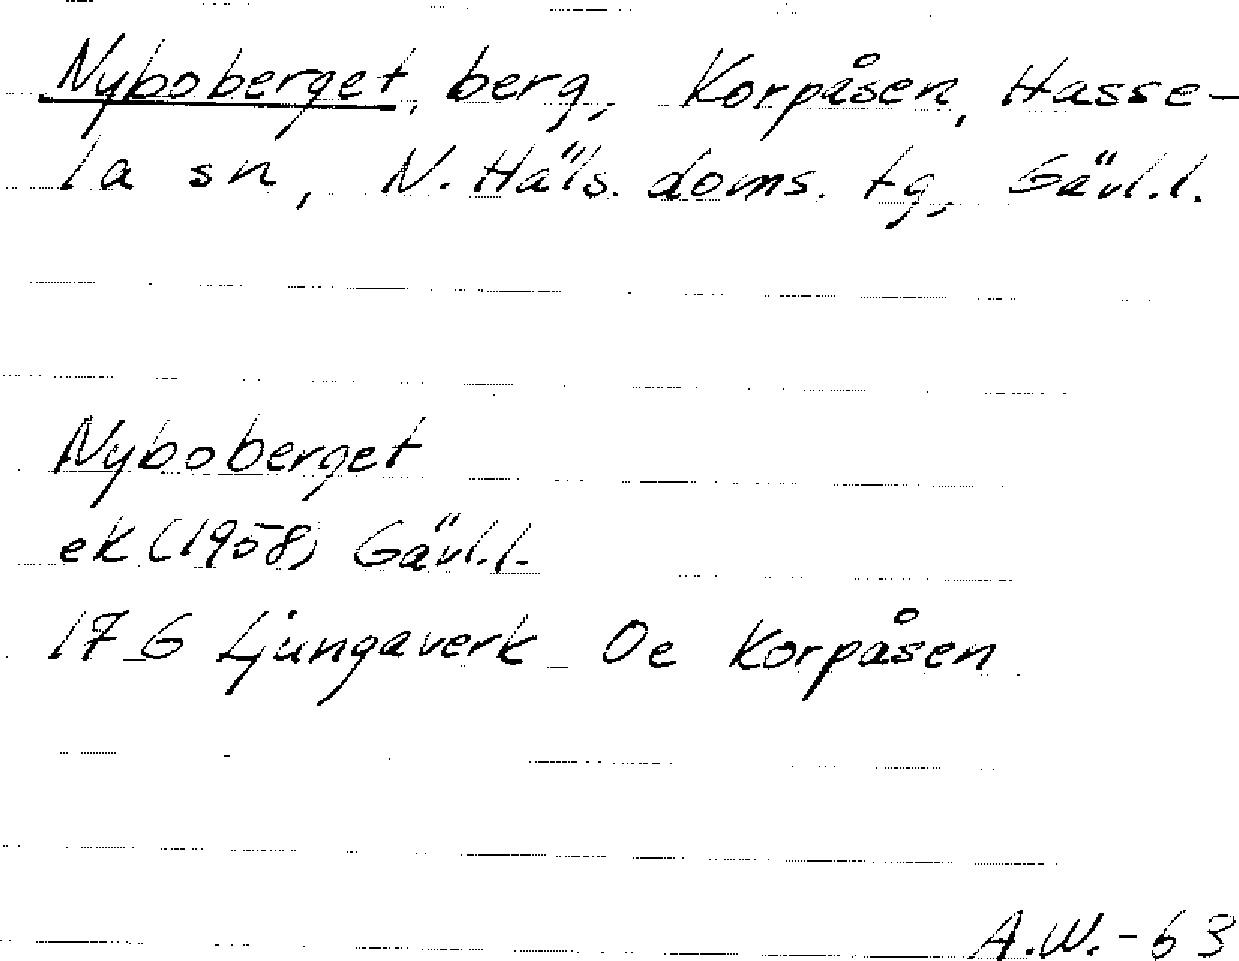 Nyboberget, berg, Korpåsen, Hasse-
la sn, N. Häls. doms. tg, Gävl.l.
Nyboberget
ek (1958) Gävl.l.
17 G Ljungaverk 0e Korpåsen
A.W.-63